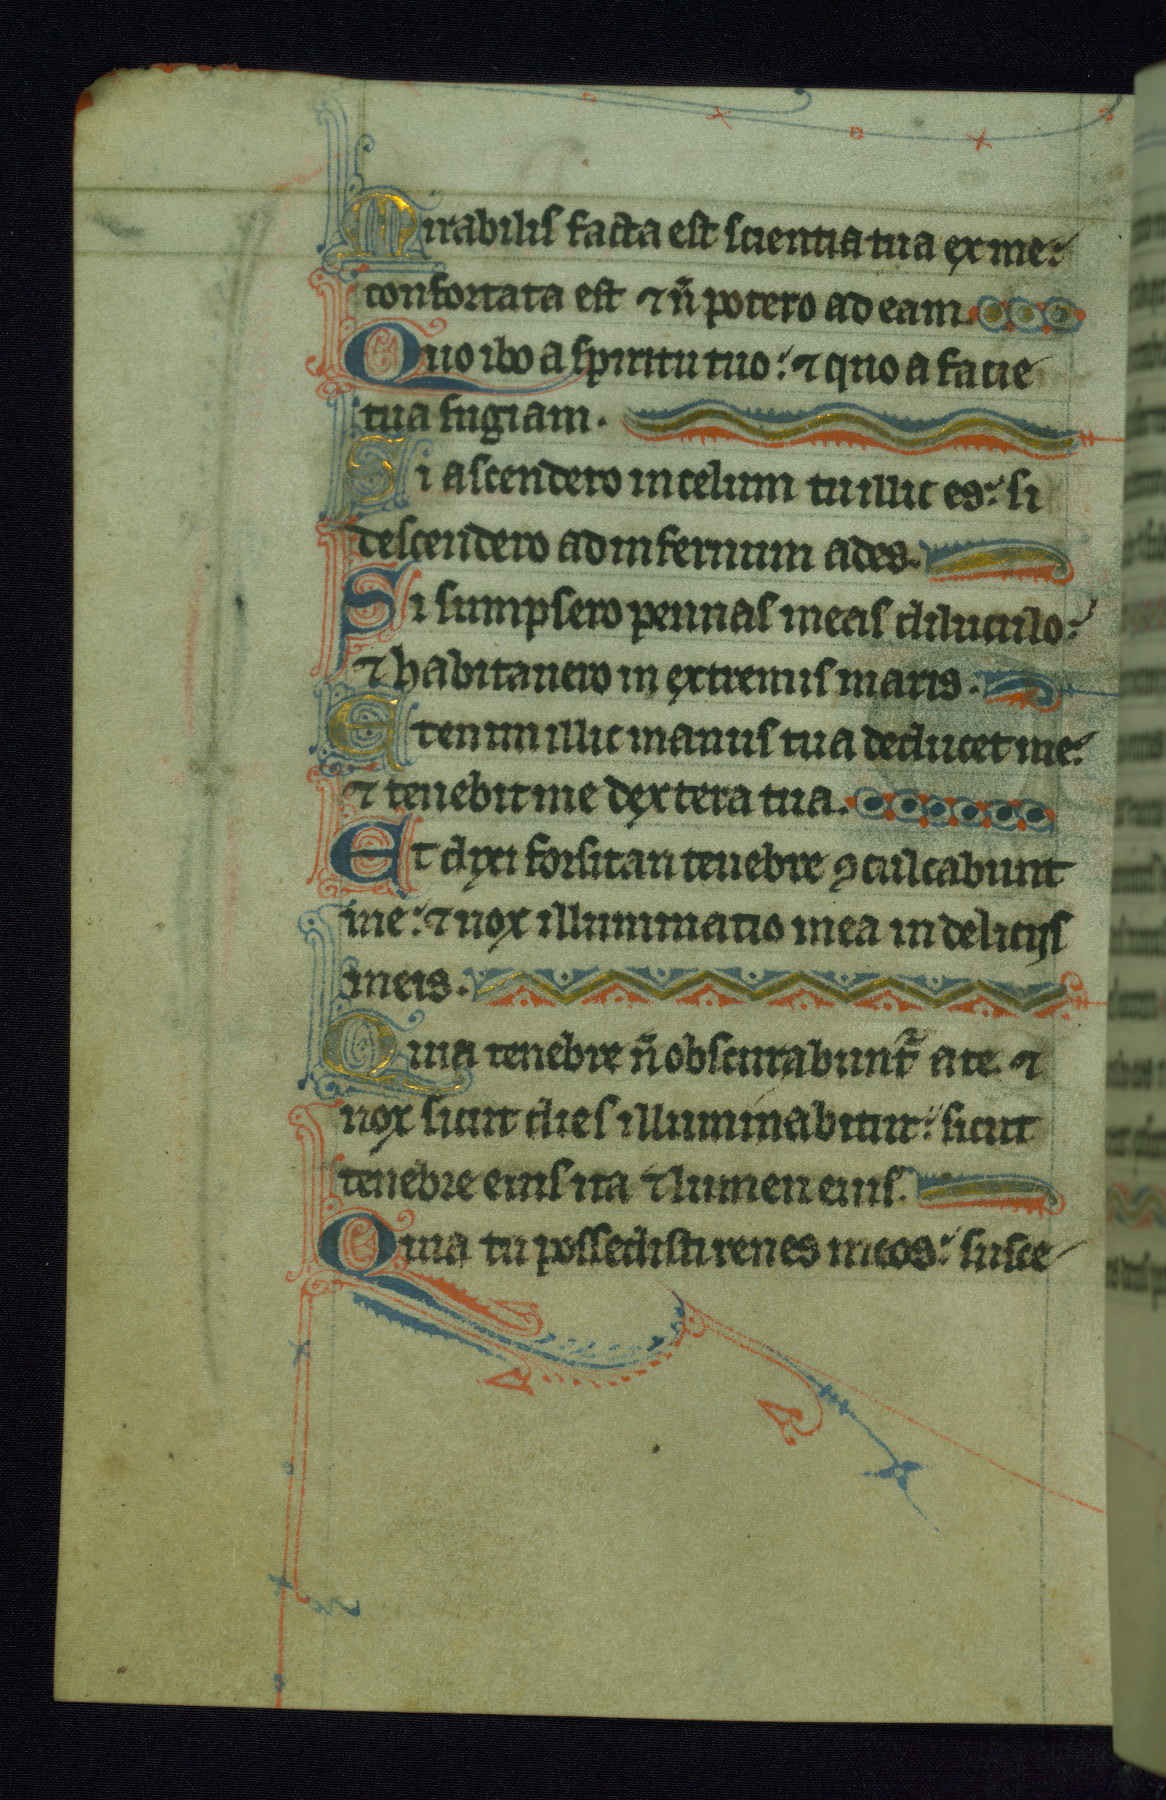 Mirabilis facta est scientia tua ex me:
confortata est ⁊ n̄ potero ad eam.
Quo ibo a spiritu tuo: ⁊ quo a facie
tua fugiam.
Si ascendero in celum tu illic es: si
descendero ad infernum ades.
Si sumpsero pennas meas diluculo:
⁊ habitauero in extremis maris.
Etenim illic manus tua deducet me:
⁊ tenebit me dextera tua.
Et dixi forsitan tenebre ꝯculcabunt
me: ⁊ nox illuminatio mea in delicijs
meis.
Quia tenebre n̄ obscurabunt᷑ a te. ⁊
nox sicut dies illuminabitur: sicut
tenebre eius ita ⁊ lumen eius.
Quia tu possedisti renes meos: susce